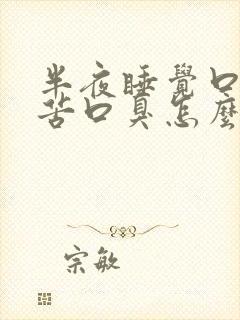 半夜睡覺口
苦口臭怎麼
宗敏